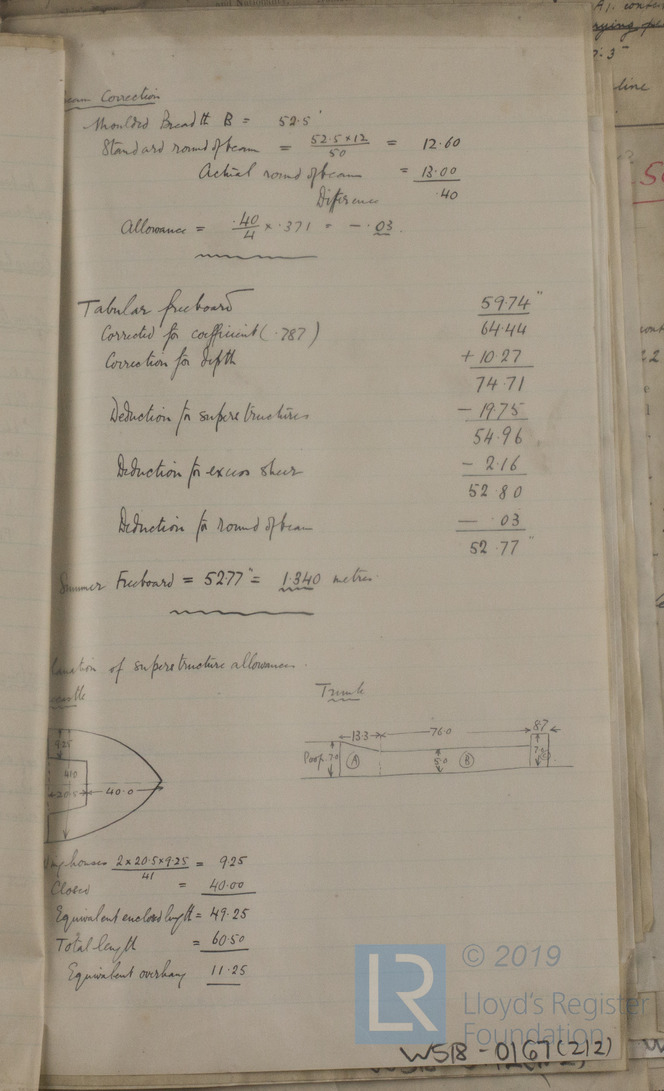 eam Correction
Moulded Breadth B = 52.5'
Standard round of beam = 52.5 x 12 / 50 = 12.60
Actual round of beam = 13.00
Difference .40
Allowance = .40 / 4 x .371 = - .03.
Tabular freeboard 59.74"
Corrected for coefficient (.787) 64.44
Correction for depth + 10.27
74.71
Deduction for superstructures - 19.75
54.96
Deduction for excess sheer - 2.16
52.80
Deduction for round of beam - .03
52.77"
Summer Freeboard = 52.77" = 1.340 metres.
lanation of superstructure allowances.
Trunk
9.25
41.0
20.5
40.0
13.3
76.0
8.7
Poop
7.0
A
5.0
B
houses 2 x 20.5 x 9.25 / 41 = 9.25
Closed = 40.00
Equivalent enclosed length = 49.25
Total length = 60.50
Equivalent overhang 11.25
LR
© 2019
Lloyd's Register
Foundation
W518-0167(2/2)
line